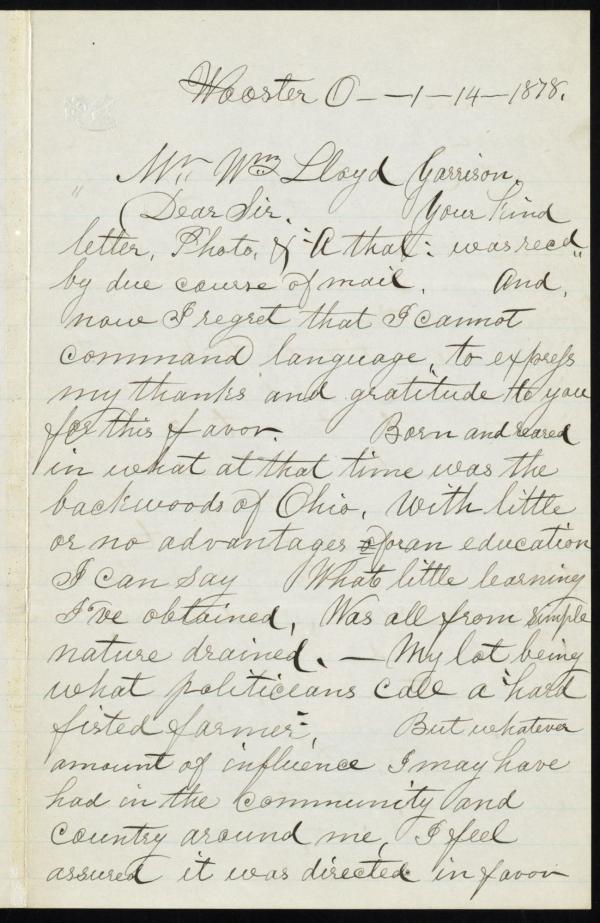 Wooster O — — 1 — 14 — 1878.
Mr. Wm Lloyd Garrison.
Dear Sir. Your kind
letter, Photo, & "A that": was recd
by due course of mail. And,
now I regret that I cannot
command language, to express
my thanks and gratitude to you
for this favor. Born and reared
in what at that time was the
backwoods of Ohio, With little
or no advantages for an education
I can say What little learning
I've obtained, Was all from simple
nature drained. — My lot being
what politiceans call a "hard
fisted farmer", But whatever
amount of influence I may have
had in the community and
country around me, I feel
assured it was directed in favor